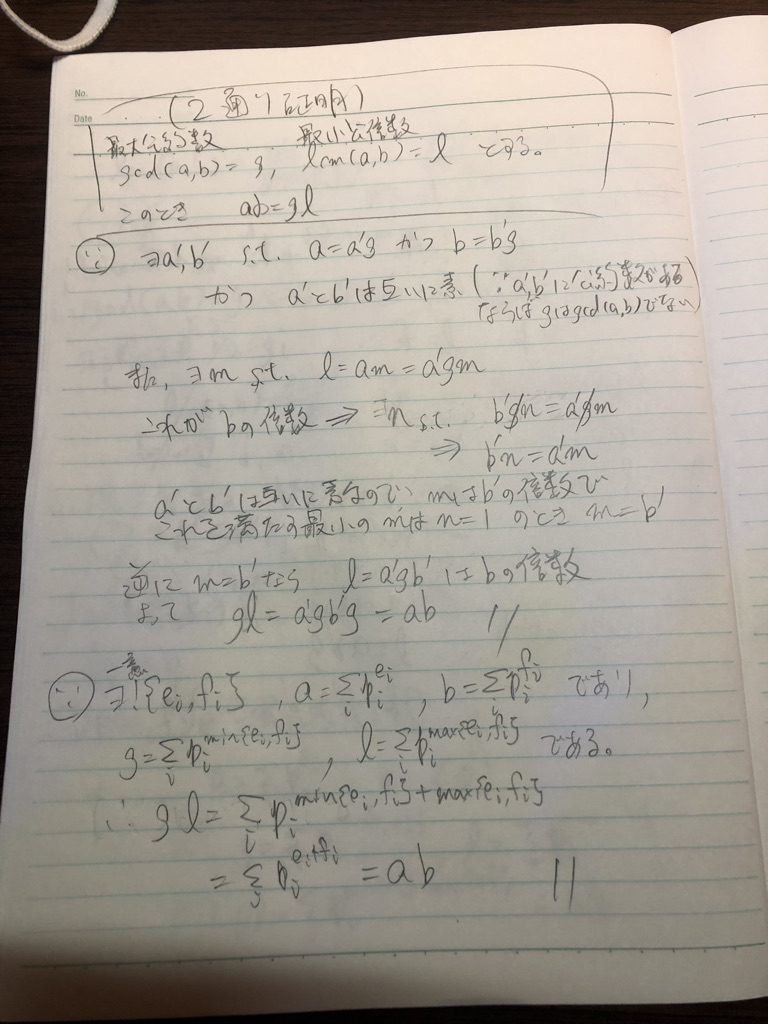 No.
Date
(2通り証明)
最大公約数 最小公倍数
gcd(a,b)=g, lcm(a,b)=l とする。
このとき ab=gl
∵ ∃a',b' s.t. a=a'g かつ b=b'g
かつ a'とb'は互いに素 (∵a',b'に公約数がある
ならばgはgcd(a,b)でない)
また, ∃m s.t. l=am=a'gm
これがbの倍数 ⇒ ∃n s.t. b'gn=a'gm
⇒ b'n=a'm
a'とb'は互いに素なので, mはb'の倍数で
これを満たす最小のmはn=1のとき m=b'
逆に m=b'なら l=a'gb'はbの倍数
よって gl=a'gb'g=ab //
一意
∵ ∃!{e_i,f_i}, a=∑_i p_i^{e_i}, b=∑_i p_i^{f_i} であり,
g=∑_i p_i^{min{e_i,f_i}}, l=∑_i p_i^{max{e_i,f_i}} である。
∴ gl=∑_i p_i^{min{e_i,f_i}+max{e_i,f_i}}
=∑_i p_i^{e_i+f_i} =ab //